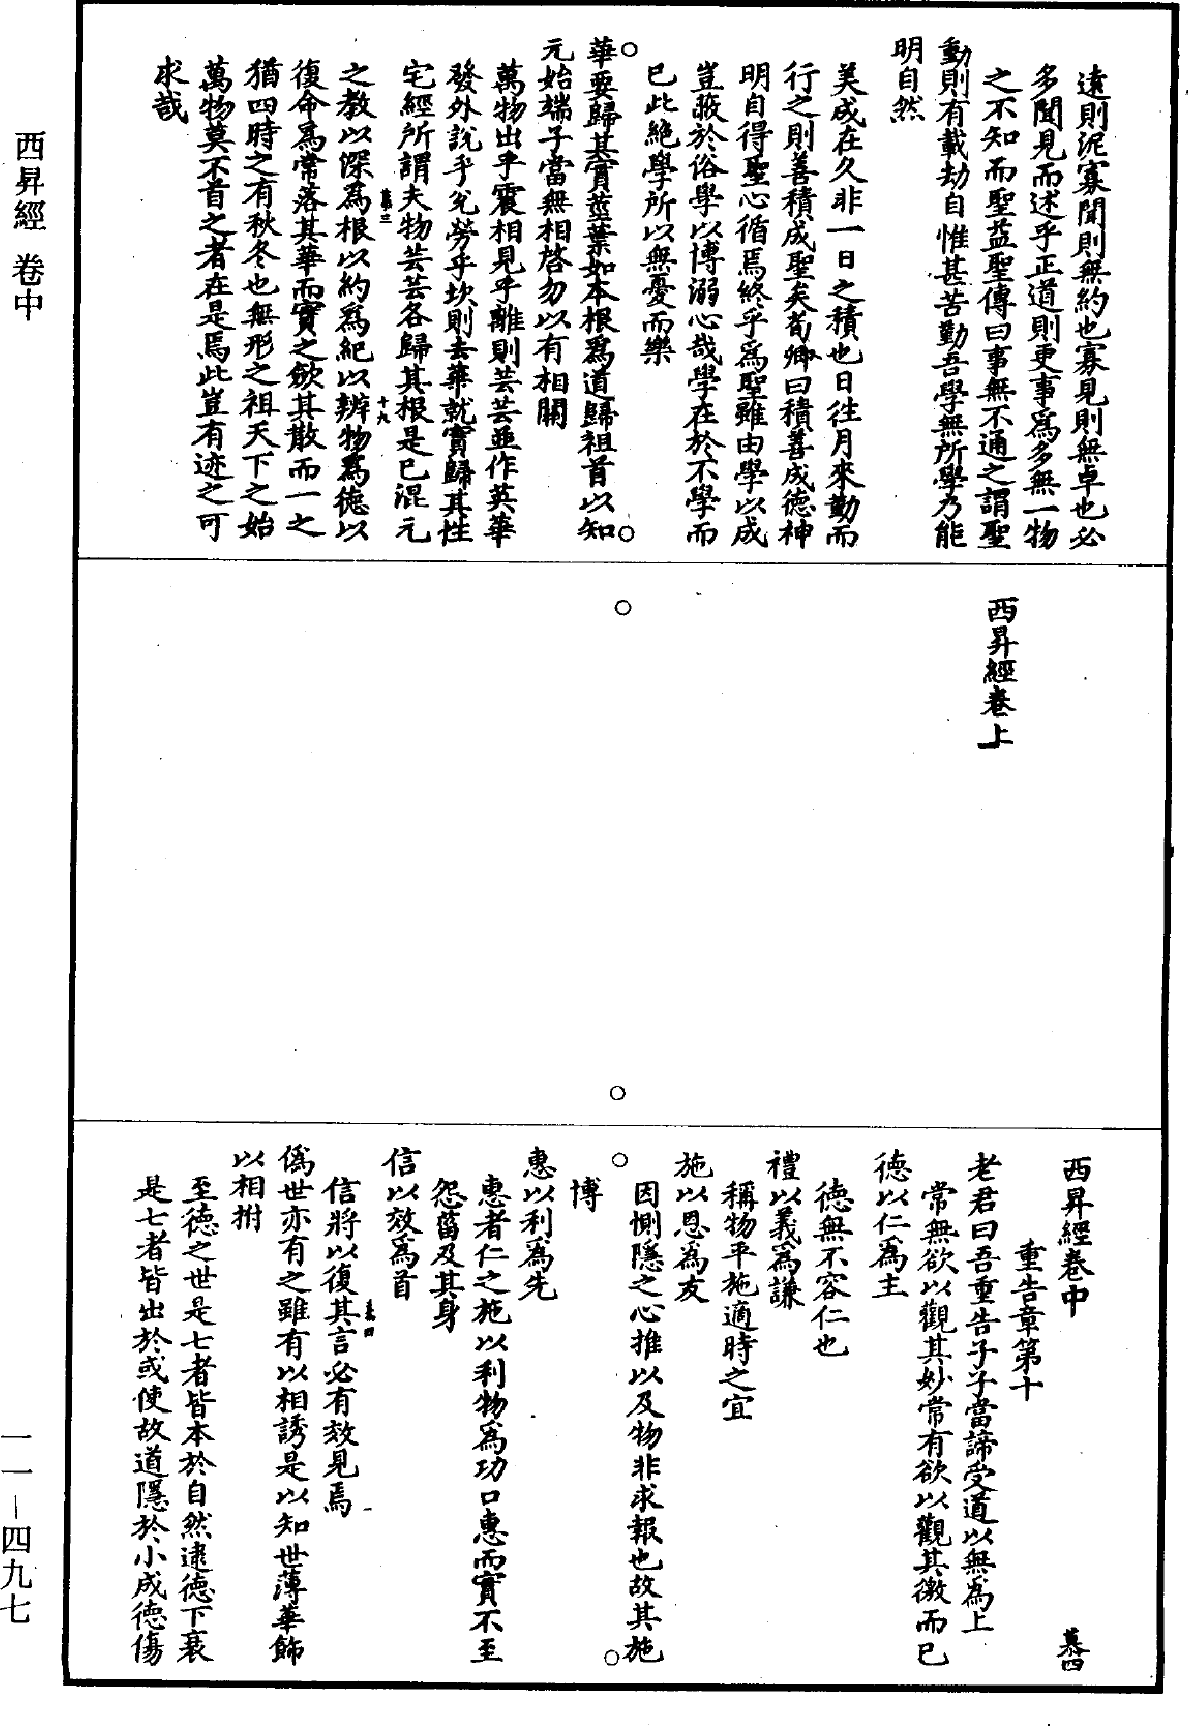 遠則泥寡聞則無約也寡見則無卓也必
多聞見而述乎正道則更事為多無一物
之不知而聖益聖傳曰事無不通之謂聖
動則有載劫自惟甚苦勤吾學無所學乃能
明自然
美成在久非一日之積也日往月來勤而
行之則善積成聖矣荀卿曰積善成德神
明自得聖心循焉終乎為聖雖由學以成
豈蔽於俗學以博溺心哉學在於不學而
已此絶學所以無憂而樂
華要歸其實莖葉如本根為道歸祖首以知
元始端子當無相啓勿以有相關
萬物出乎震相見乎離則芸芸並作英華
發外說乎兌勞乎坎則去華就實歸其性
宅經所謂夫物芸芸各歸其根是已混元
慕三
十九
之教以深為根以約為紀以辨物為德以
復命為常落其華而實之斂其散而一之
猶四時之有秋冬也無形之祖天下之始
萬物莫不首之者在是焉此豈有迹之可
求哉
西昇經卷上
西昇經卷中
慕四
重告章第十
老君曰吾重告子子當諦受道以無為上
常無欲以觀其妙常有欲以觀其徼而已
德以仁為主
德無不容仁也
禮以義為謙
稱物平施適時之宜
施以恩為友
因惻隱之心推以及物非求報也故其施
博
惠以利為先
惠者仁之施以利物為功口惠而實不至
怨菑及其身
信以效為首
信將以復其言必有效見焉
慕四
偽世亦有之雖有以相誘是以知世薄華飾
以相拊
至德之世是七者皆本於自然逮德下衰
是七者皆出於或使故道隱於小成德傷
西昇經 卷中
一一－四九七